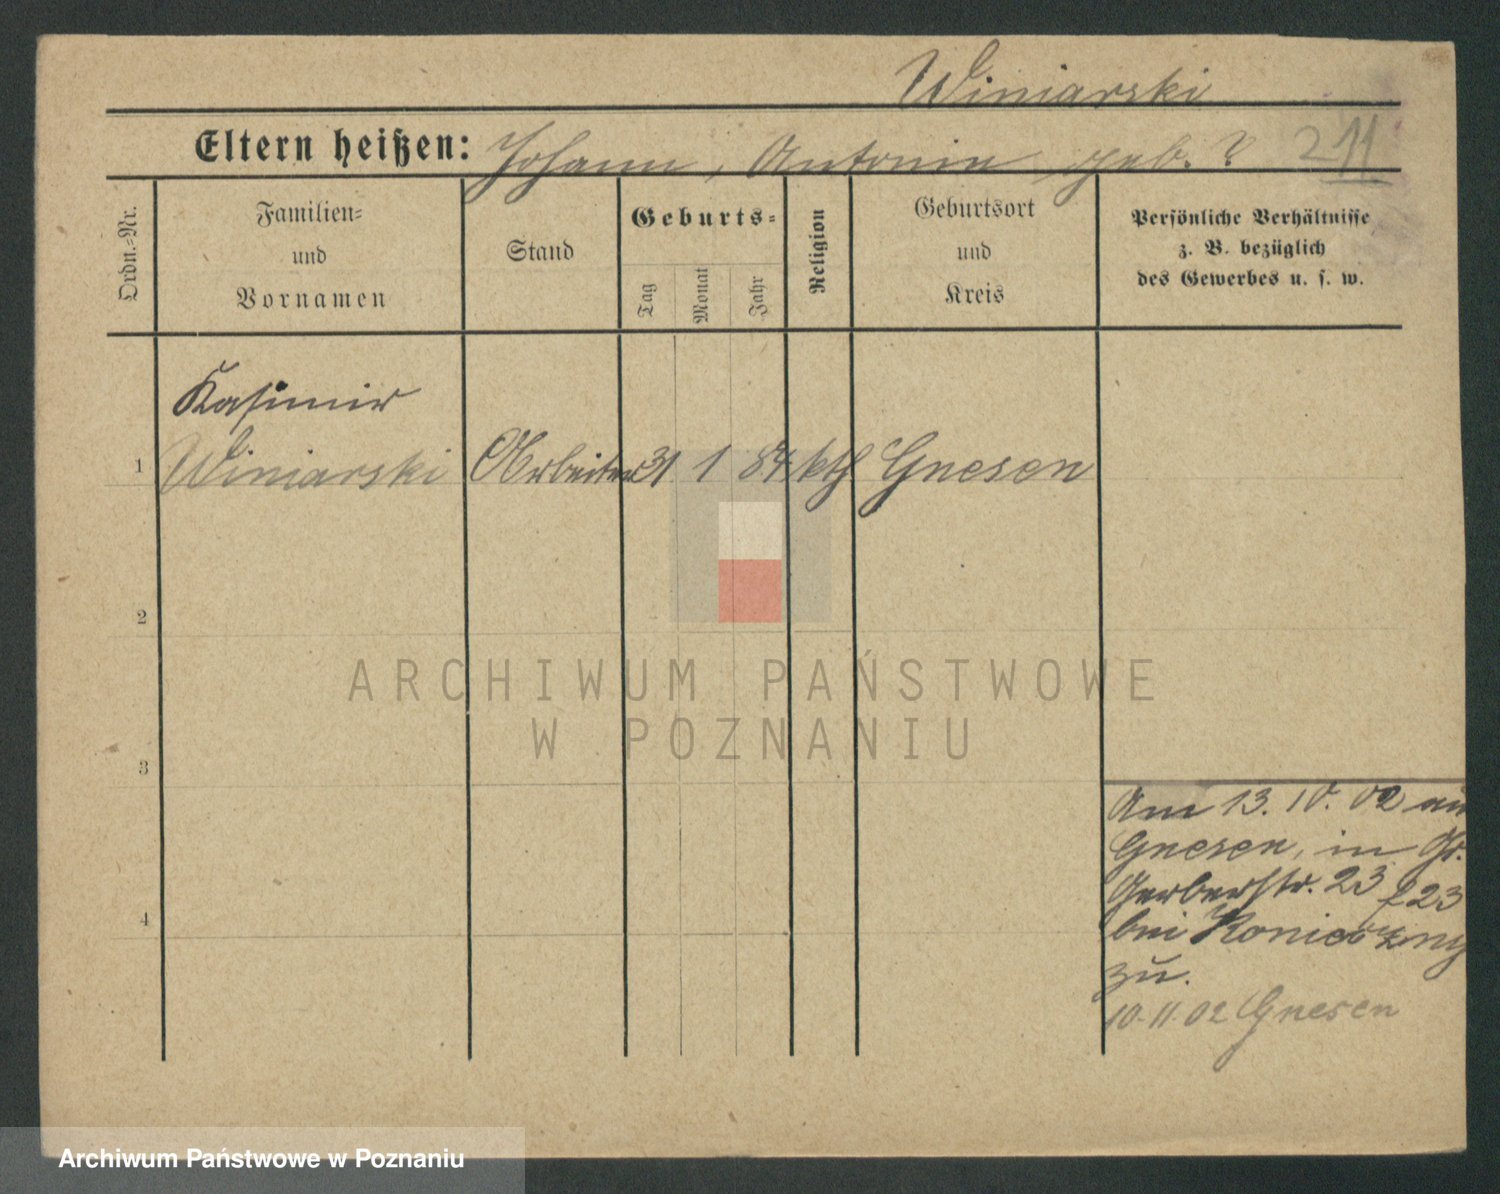 Winiarski
Eltern heißen: Johann, Antonie geb. ? 211
Ordn.-Nr.
Familien- und Vornamen
Stand
Geburts-
Tag
Monat
Jahr
Religion
Geburtsort und Kreis
Persönliche Verhältnisse
z. B. bezüglich
des Gewerbes u. s. w.
Kasimir
1 Winiarski Arbeiter 31 1 84 kth Gnesen
2
3
4
Am 13. 10. 02 aus
Gnesen, in Gr.
Gerberstr. 23 f 23
bei Konieczny
zu.
10.11.02 Gnesen
ARCHIWUM PAŃSTWOWE
W POZNANIU
Archiwum Państwowe w Poznaniu